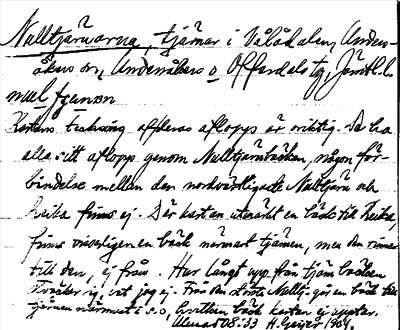 Nulltjärnarna, tjärnar i Vålådalen, Under-
åkers sn, Undersåkers o Offerdals tg, Jämtl. l.
Kartans teckning af deras aflopp är oriktig. De ha
alla sitt aflopp genom Nulltjärnbäcken, någon för-
bindelse mellan den nordvästligaste Nulltjärn och
finns ej. Där kartan utmärkt en bäck till
finns visserligen en bäck närmast tjärnen, men den rinner
till den, ej från. Hur långt upp från tjärn bäcken
sig, vet jag ej. Från den största Nulltj. går en bäck till
tjärnen närmast i s.o., hvilken bäck kartan ej upptar.
08:33 H. 1909.